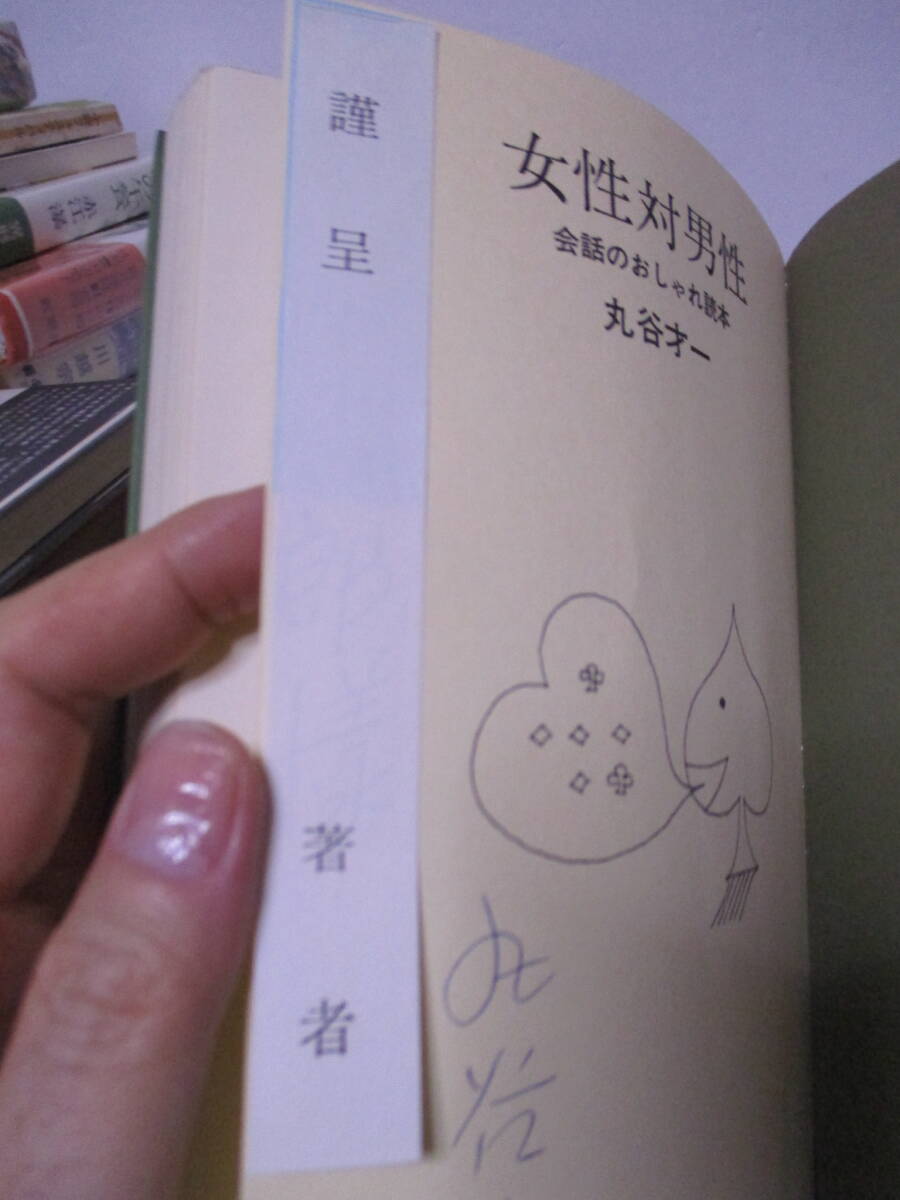 謹呈 著者
女性対男性
会話のおしゃれ読本
丸谷才一
丸谷